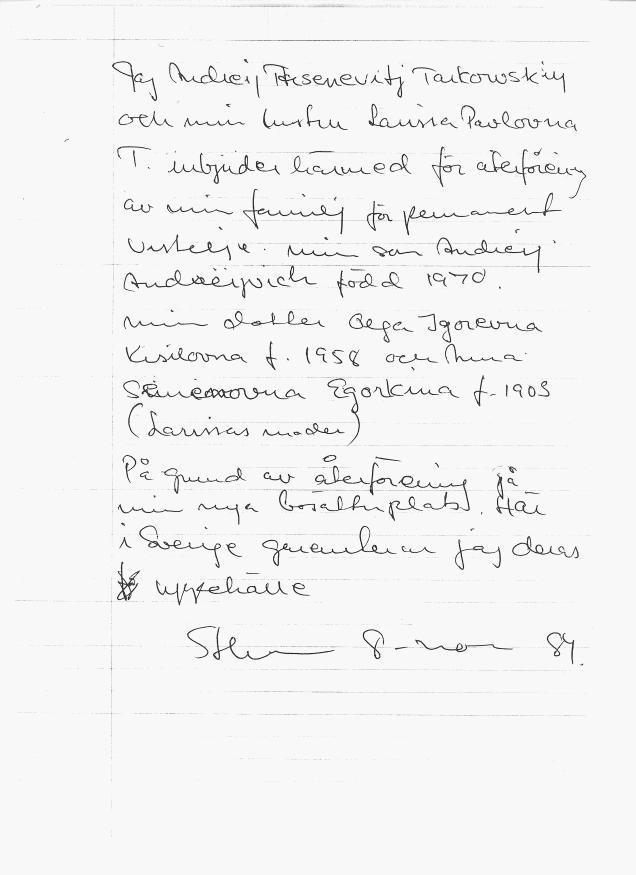 Jag Andreij Arsenevitj Tarkowskiy
och min hustru Larissa Pavlovna
T. inbjuder härmed för återförening
av min familj för permanent
vistelse. min son Andreij
Andreijvich född 1970.
min dotter Olga Igorevna
Kisilovna f. 1958 och Anna
Semenovna Egorkina f. 1903
(Larissas moder)
På grund av återförening på
min nya bosättnplats. Här
i Sverige garanterar jag deras
uppehälle
Sthlm 8-nov 84.